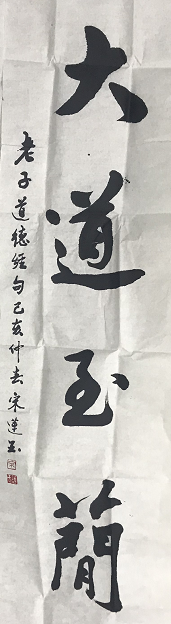 大道至簡
老子道德經句己亥仲春宋蓮玉